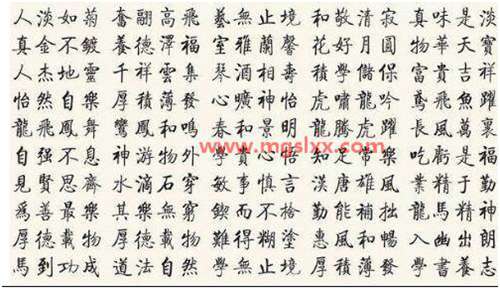 人淡如菊 奮翮高飛 藝無止境 和敬清寂 真味是淡
真金不鍍 養德澤福 室雅蘭馨 花好月圓 物華天寶
人杰地靈 千祥雲集 琴酒相壽 積學儲保 富貴吉祥
怡然自樂 厚積薄發 心曠神怡 虎嘯龍吟 鳶飛魚躍
龍飛鳳舞 鸞鳳和鳴 春和景明 龍騰虎躍 長風萬裏
www.mgslxx.com
自強不息 神游物外 心 知足常樂 吃虧是福
見賢思齊 水滴石穿 敏事慎言 漢唐雄風 業精于勤
爲善最樂 其樂無窮 而不 勤能補拙 龍馬精神
厚德載物 厚德載物 難得糊塗 惠風和暢 入幽出朗
馬到功成 道法自然 學無止境 厚積薄發 學書養志